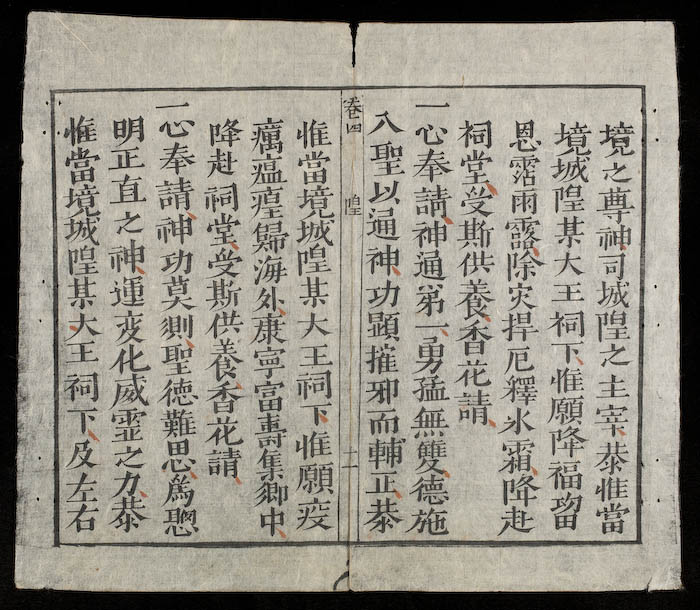 境之尊神司城隍之主宰恭惟當
境城隍某大王祠下惟願降福畱
恩霑雨露除灾捍厄釋氷霜降赴
祠堂受斯供養香花請
一心奉請神通第一勇猛無雙德施
入聖以通神功顯摧邪而輔正恭
卷四 隍 十一
惟當境城隍某大王祠下惟願疫
癘瘟㾮歸海外康寧富壽集鄉中
降赴祠堂受斯供養香花請
一心奉請神功莫測聖德難思爲聰
明正直之神運变化威霊之力恭
惟當境城隍某大王祠下及左右